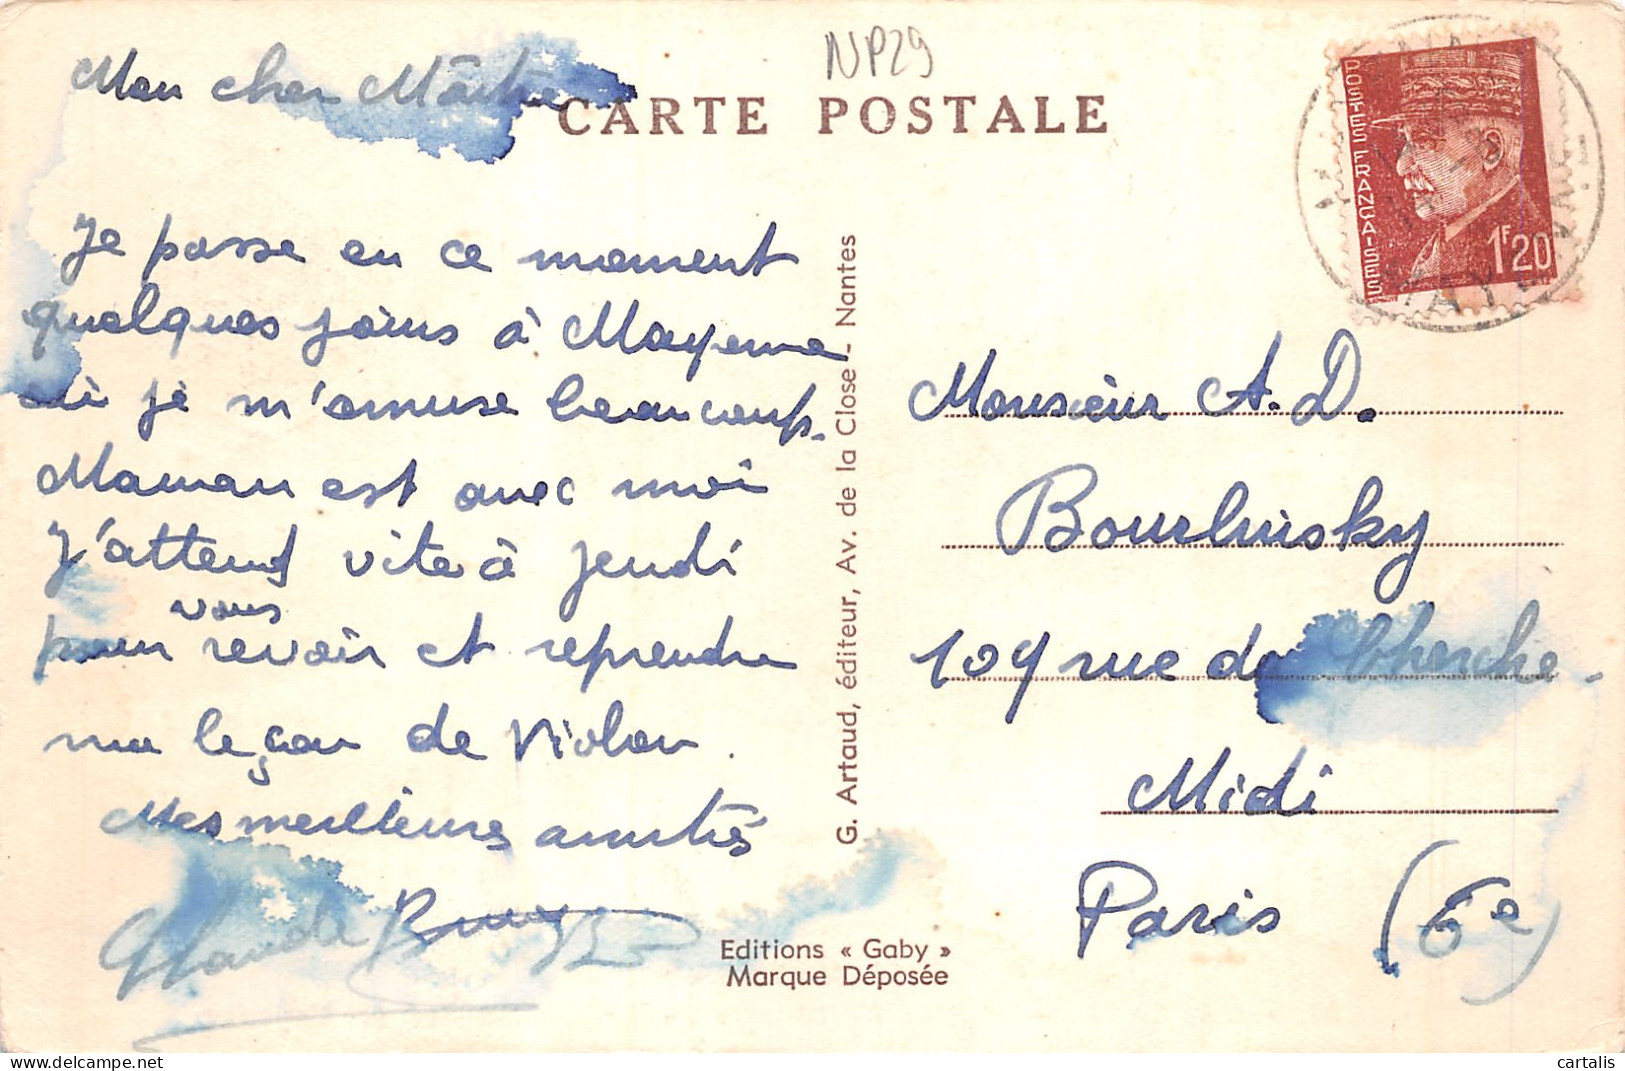 NP29
CARTE POSTALE
POSTES FRANÇAISES
1F20
Mon cher Maître
Je passe en ce moment
quelques jours à Mayenne
où je m'amuse beaucoup.
Maman est avec moi
J'attend vite à jeudi
vous
pour revoir et reprendre
ma leçon de violon.
Mes meilleures amitiés
Claude
G. Artaud, éditeur, Av. de la Close - Nantes
Editions « Gaby »
Marque Déposée
Monsieur A.D.
109 rue du Cherche-
Midi
Paris (6e)
cartalis